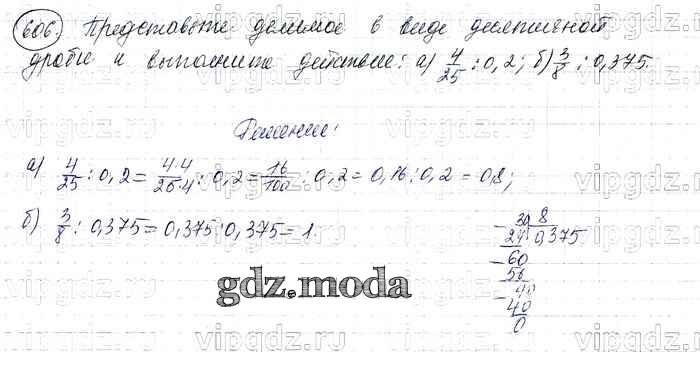 606. Представьте делимое в виде десятичной
дроби и выполните действие: а) 4/25 : 0,2; б) 3/8 : 0,375.
Решение:
а) 4/25 : 0,2 = 4·4/25·4 : 0,2 = 16/100 : 0,2 = 0,16 : 0,2 = 0,8;
б) 3/8 : 0,375 = 0,375 : 0,375 = 1.
30 8
- 24 0,375
- 60
56
- 40
40
0
gdz.moda
vipgdz.com